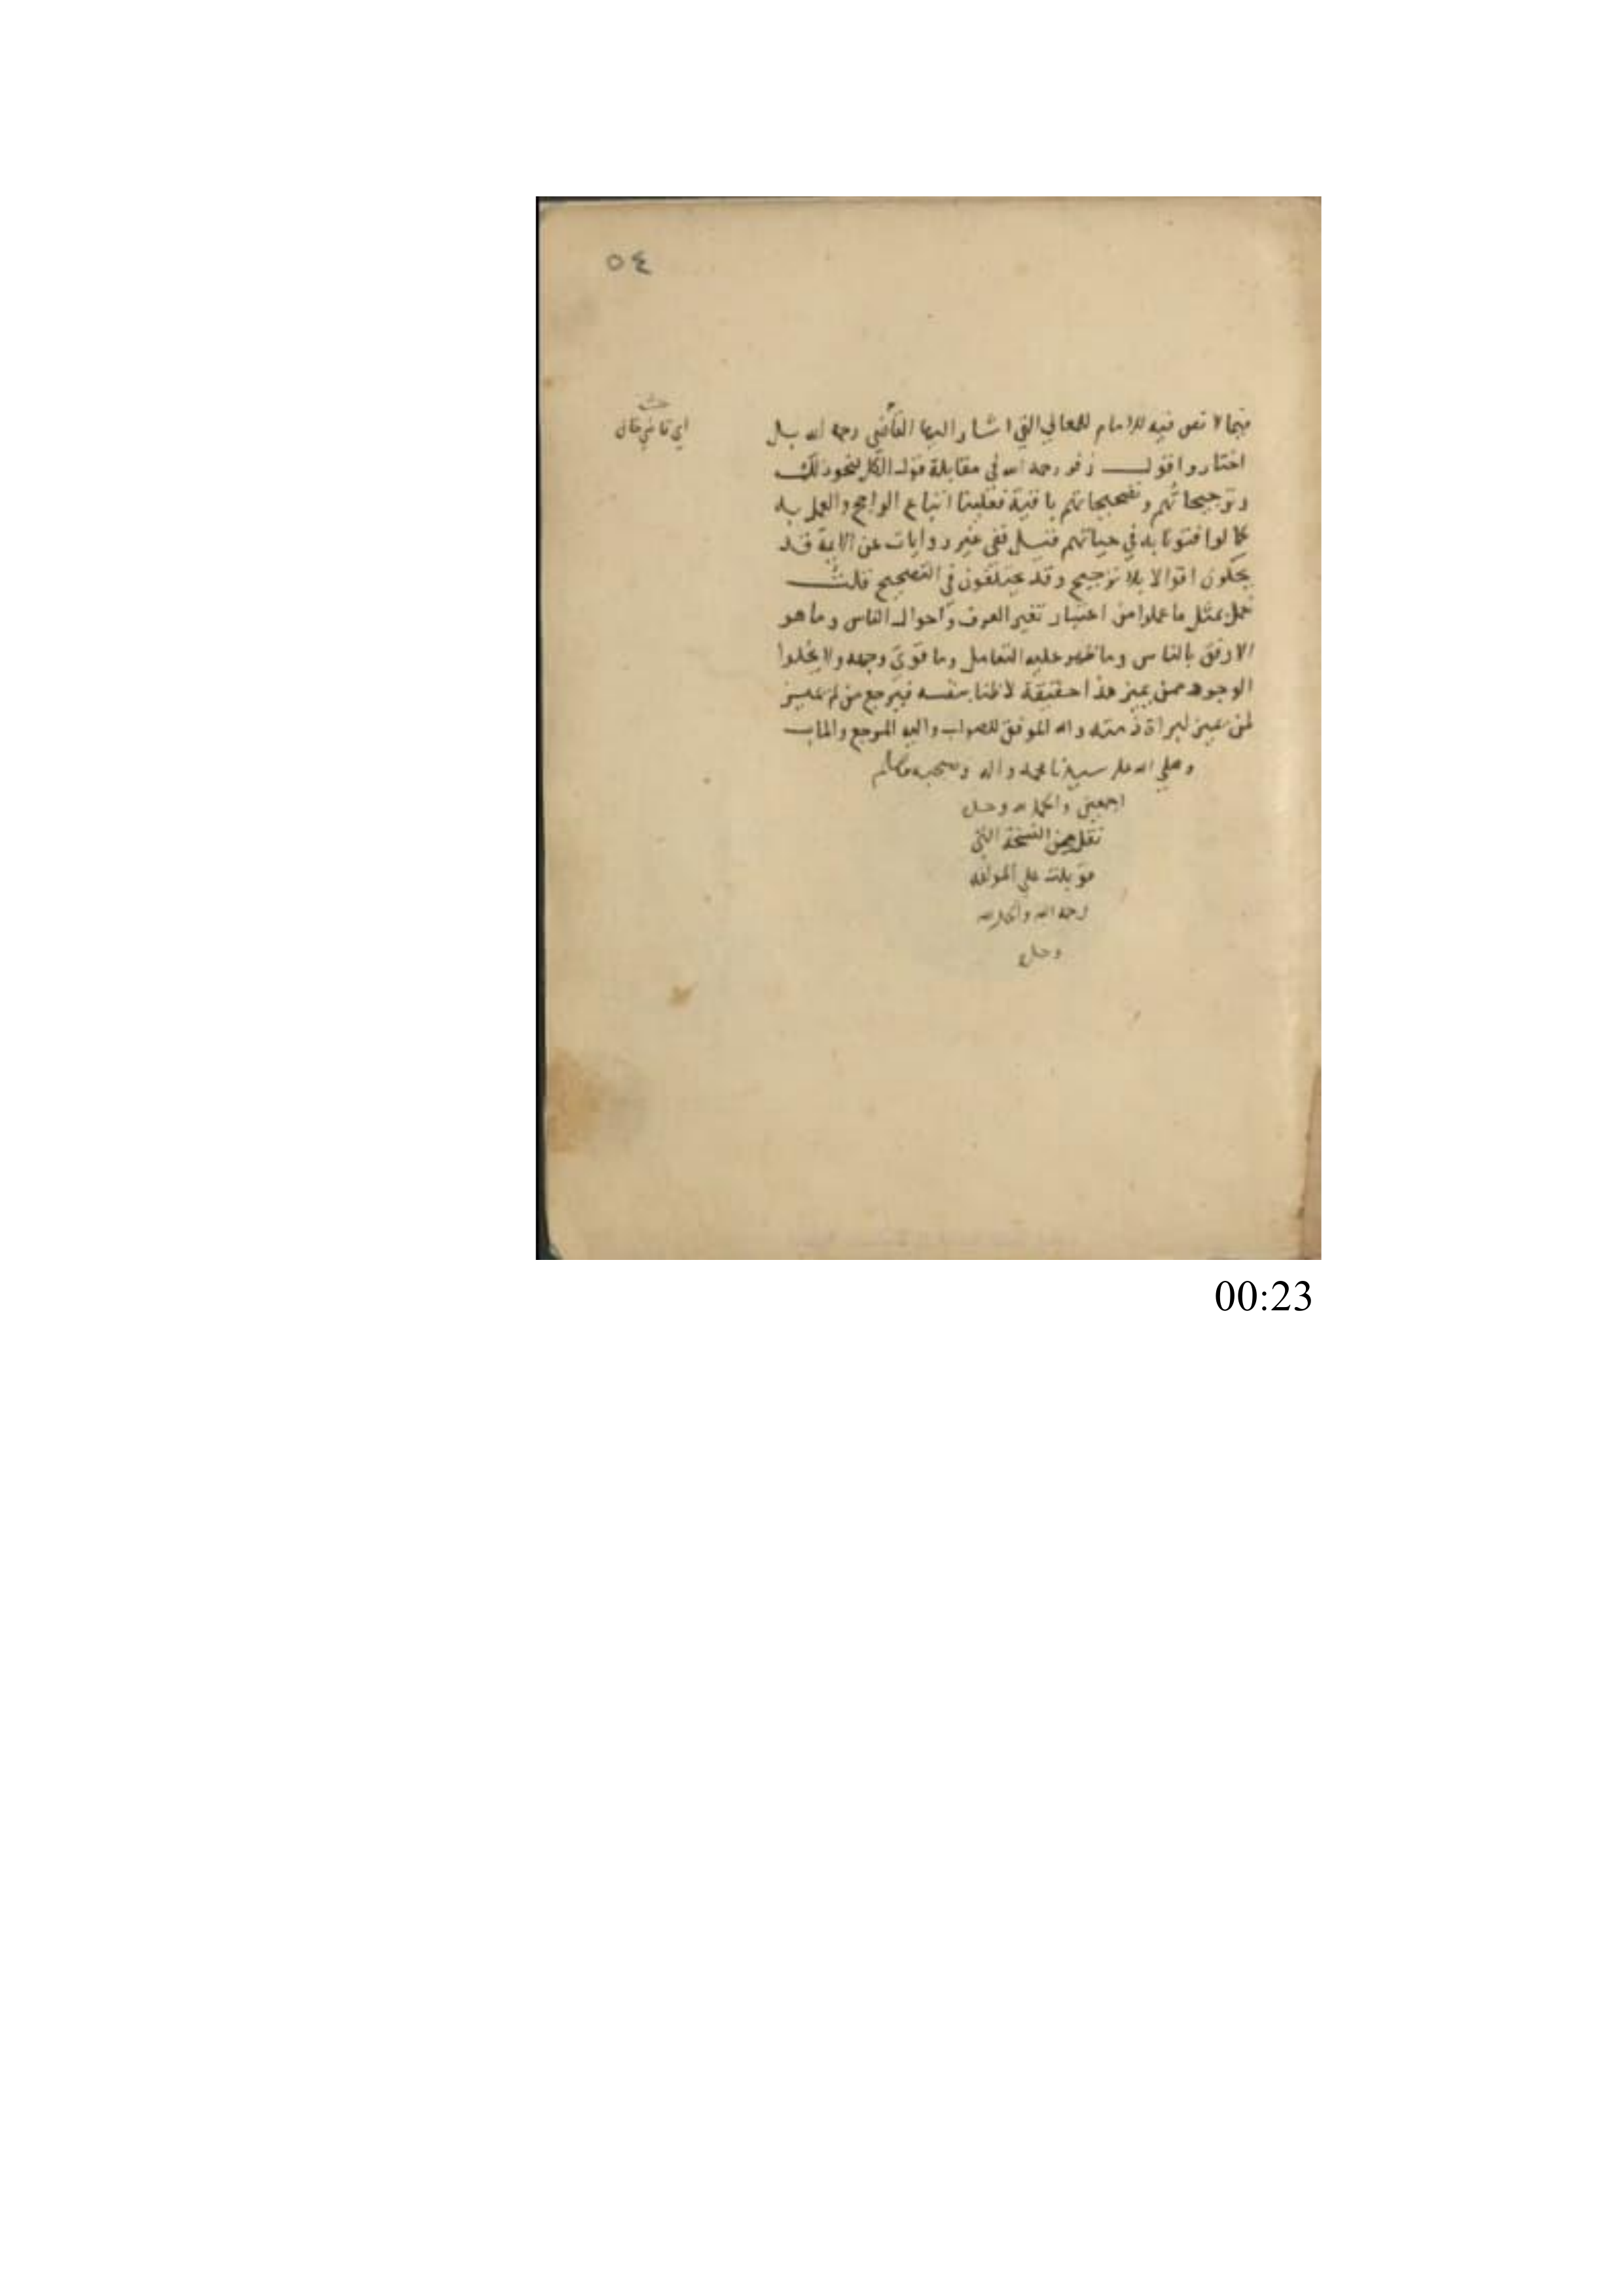 ٥٤
فيما لا نص فيه للامام للمعاني التي اشار اليها القاضي رحمه الله بل
اي قاضي خان
اختاروا قول زفر رحمه الله في مقابلة قول الكل لنحو ذلك
وترجيحاتهم وتصحيحاتهم باقية فعلينا اتباع الراجح والعمل به
كما لو افتونا به في حياتهم فنل ففي غير روايات عن الايمة قد
يحكون اقوالا بلا ترجيح وقد يختلفون في التصحيح قلت
نعمل بمثل ما عملوا من اعتبار تغير العرف واحوال الناس وما هو
الارفق بالناس وما ظهر عليه التعامل وما قوي وجهه ولا يخلوا
الوجود ممن يميز هذا حقيقة لا ظنا بنفسه فيرجع من لم يميز
لمن يميز لبراة ذمته والله الموفق للصواب واليه المرجع والماب
وصلي الله علي سيدنا محمد واله وصحبه وسلم
اجمعين والحمد لله وحده
نقل من النسخة التي
قوبلت علي المولفه
رحمه الله والحمد لله
وحده
00:23